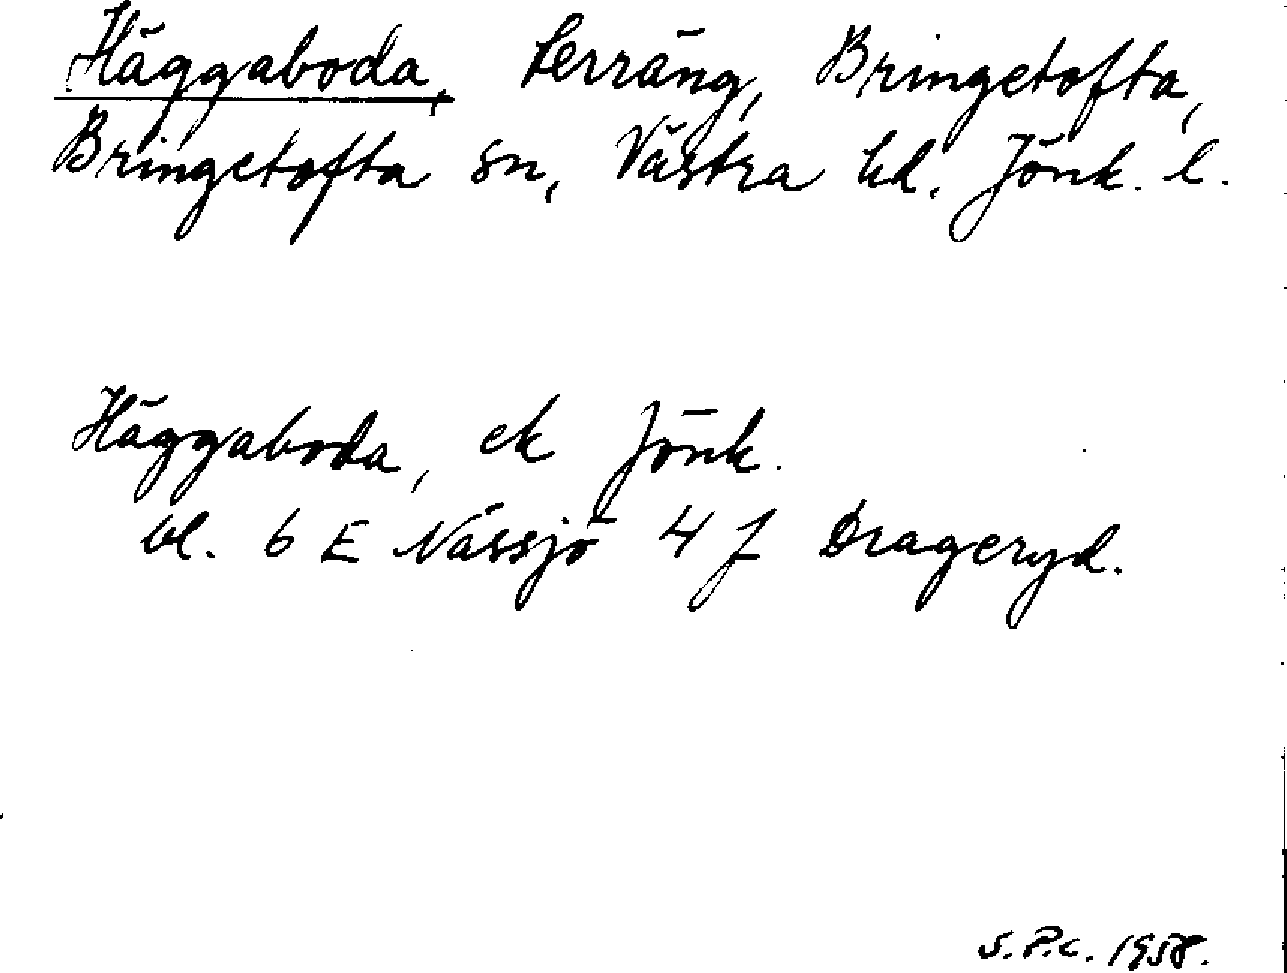 Häggaboda, terräng, Bringetofta,
Bringetofta sn, Västra hd. Jönk. l.
Häggaboda, ek Jönk.
bl. 6 E Nässjö 4 f Drageryd.
S.P.C. 1958.